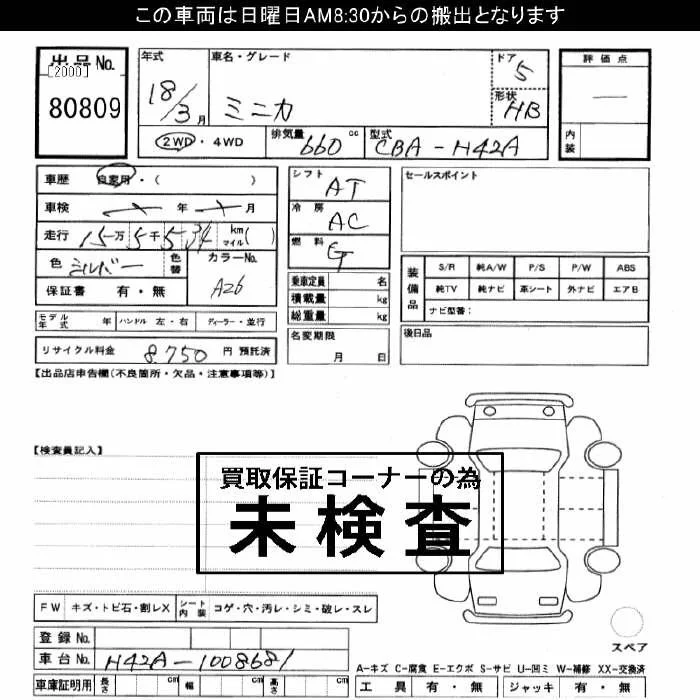 この車両は日曜日AM8:30からの搬出となります
出品No. [2000] 80809
年式 18/3月 車名・グレード ミニカ ドア 5 形状 HB
2WD・4WD 排気量 660 cc 型式 CBA-H42A
評価点 — 内装
車歴 自家用・( )
車検 年 月
走行 15万5千534 km マイル( )
色 シルバー 色替 カラーNo. A26
保証書 有・無
モデル年式 年 ハンドル 左・右 ディーラー・並行
リサイクル料金 8,750 円 預託済
シフト AT
冷房 AC
燃料 G
乗車定員 名
積載量 kg
総重量 kg
名変期限 月 日
セールスポイント
装備品 S/R 純A/W P/S P/W ABS
純TV 純ナビ 革シート 外ナビ エアB
ナビ型番:
後日品
【出品店申告欄(不良箇所・欠品・注意事項等)】
【検査員記入】
買取保証コーナーの為
未検査
FW キズ・トビ石・割レX シート内装 コゲ・穴・汚レ・シミ・破レ・スレ
スペア
登録No.
車台No. H42A-1008681
A-キズ C-腐食 E-エクボ S-サビ U-凹ミ W-補修 XX-交換済
車庫証明用 長さ cm 幅 cm 高さ cm 工具 有・無 ジャッキ 有・無